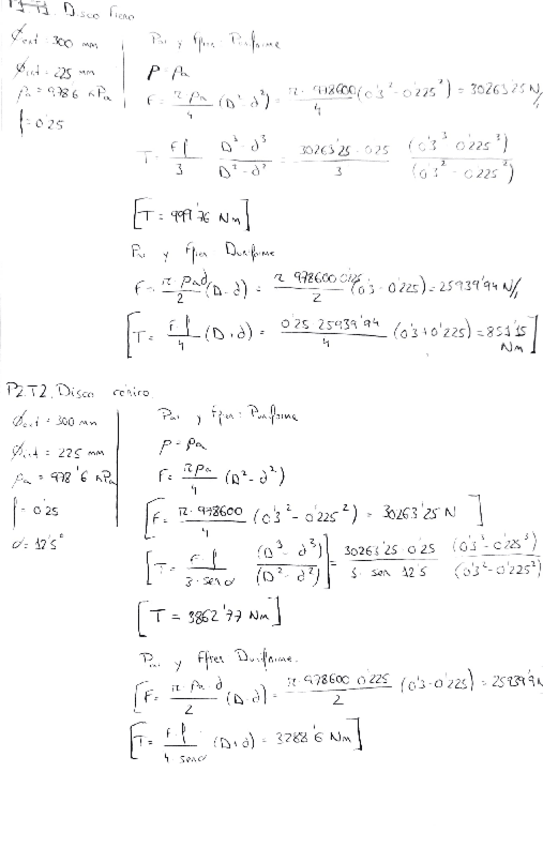 P1.T1. Disco
Øext = 300 mm
Øint = 225 mm
Pa = 978'6 kPa
f = 0'25
Par y Ffren Puniforme
P = Pa
F = π Pa / 4 (D² - d²) = π · 978600 / 4 (0'3² - 0'225²) = 30263'25 N//
T = F f / 3 · D³ - d³ / D² - d² = 30263'25 · 0'25 / 3 · (0'3³ 0'225³) / (0'3² - 0'225²)
[T = 999'76 Nm]
Par y Ffren Duniforme
F = π Pa d / 2 (D - d) = π 978600 0'225 / 2 (0'3 - 0'225) = 25939'94 N//
[T = F · f / 4 (D + d) = 0'25 25939'94 / 4 (0'3 + 0'225) = 851'15 Nm]
P2.T2. Disco cónico
Øext = 300 mm
Øint = 225 mm
Pa = 978'6 kPa
f = 0'25
α = 12'5°
Par y Ffren: Puniforme
P = Pa
F = π Pa / 4 (D² - d²)
[F = π · 978600 / 4 (0'3² - 0'225²) = 30263'25 N]
[T = F · f / 3 · sen α (D³ - d³) / (D² - d²)] = 30263'25 · 0'25 / 3 · sen 12'5 (0'3³ - 0'225³) / (0'3² - 0'225²)
[T = 3862'77 Nm]
Par y Ffren Duniforme.
[F = π · Pa d / 2 (D - d) = π · 978600 0'225 / 2 (0'3 - 0'225) = 25939'94
[T = F · f / 4 sen α (D + d) = 3288'6 Nm]